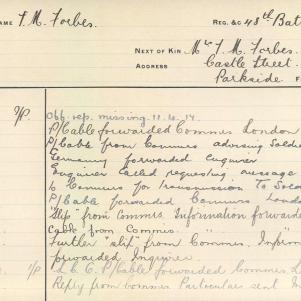 NAME T. M. Forbes. REG. &C 48th Bat
NEXT OF KIN Mr T. M. Forbes.
ADDRESS Castle Street.
Parkside
P/P. Off. rep. missing 11.4.17.
P/Cable forwarded Commrs London
P/Cable from Commrs advising Soldier
Germany forwarded enquirer
Enquirer called requesting message
to Commrs for transmission to Sold
P/Cable forwarded Commrs Lond
"Slip" from Commrs. Information forwarde
Cable from Commrs.
Further "slip" from Commrs. Infor
forwarded Inquirer.
P/P L.C.C. P/Cable forwarded Commrs L
Reply from Commrs Particulars sent